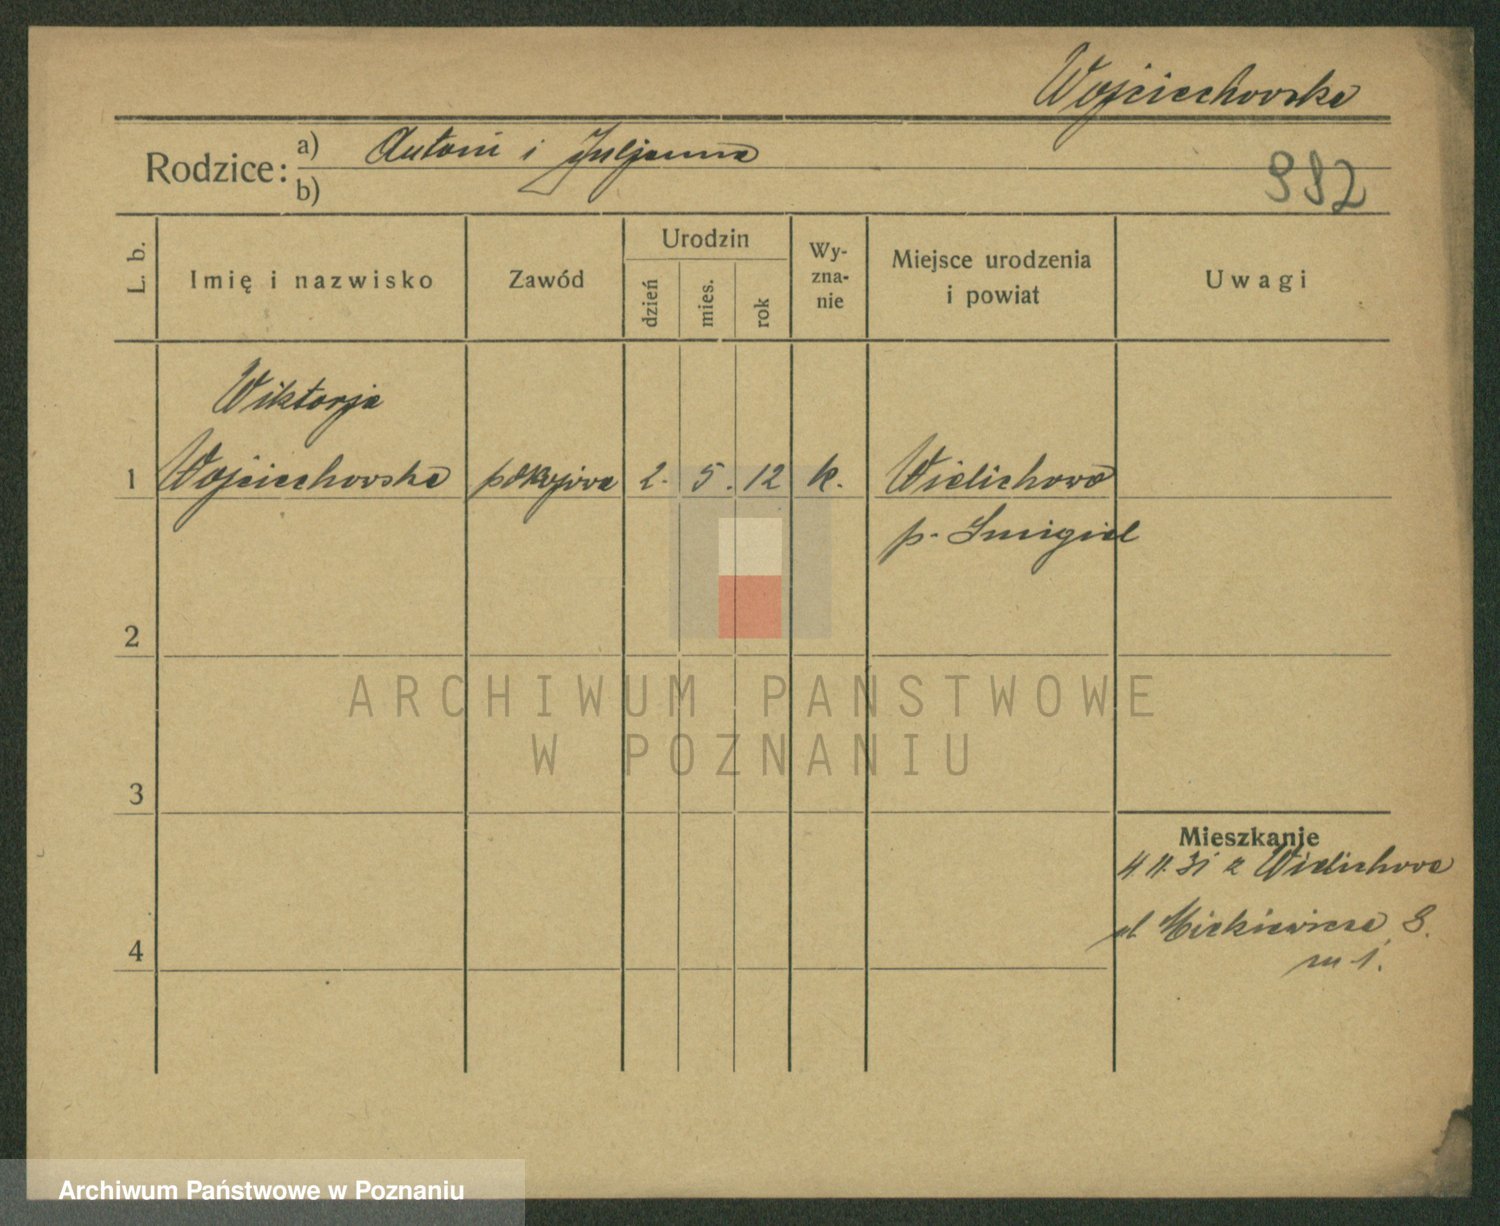 Wojciechowska
Rodzice: a) Antoni i Juljanna
b)
982
L. b.
Imię i nazwisko
Zawód
Urodzin
dzień
mies.
rok
Wy-
zna-
nie
Miejsce urodzenia
i powiat
Uwagi
Wiktorja
1 Wojciechowska pokojowa 2. 5. 12 k. Wielichowo
p. Smigiel
2
3
4
Mieszkanie
4.11.31 z Wielichowa
ul. Mickiewicza 8.
m 1.
ARCHIWUM PAŃSTWOWE
W POZNANIU
Archiwum Państwowe w Poznaniu